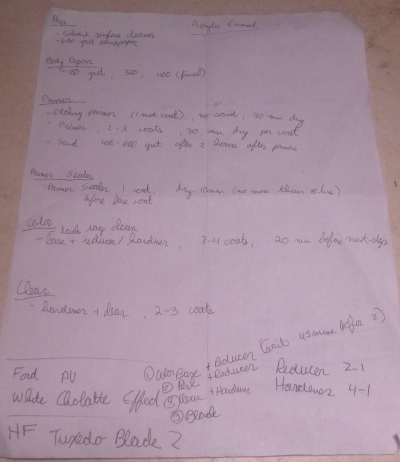 Prep
Acrylic Enamel
- Solvent surface cleaner
- 600 grit sandpaper
Body Repair
- 180 grit, 320, 400 (final)
Primer
- Etching primer (1 med coat), no sand, 30 min dry
- Primer, 2-3 coats, 30 min dry per coat
- Sand 400-600 grit after 2 hours after primer
Primer Sealer
- Primer Sealer 1 coat, dry 15min (no more than
before base coat
Color
tack rag clean
- base + reducer/hardener, 2-4 coats, 20 min before next step
Clear
- hardener + clear, 2-3 coats
Ford PU
White Cholatte Effect
① Color Base + Reducer (wait 45 minute before 2)
② Perl + Reducer
③ Clear + Hardener
Blende
Reducer 2-1
Hardener 4-1
HF Tuxedo Blende 2